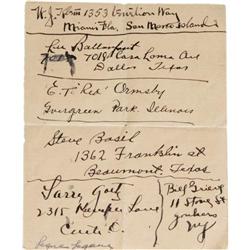 W. J. 1353 Way
Miami Fla. San Marco Island
Lee Ballanfant
7018 Casa Loma Ave
Dallas Texas
E. T. "Red" Ormsby
Evergreen Park Illinois
Steve Basil
1362 Franklin st
Beaumont, Texas
Larry Goetz
2315 Kemper Lane
Cinti O.
11 Stone st
Yonkers
NY